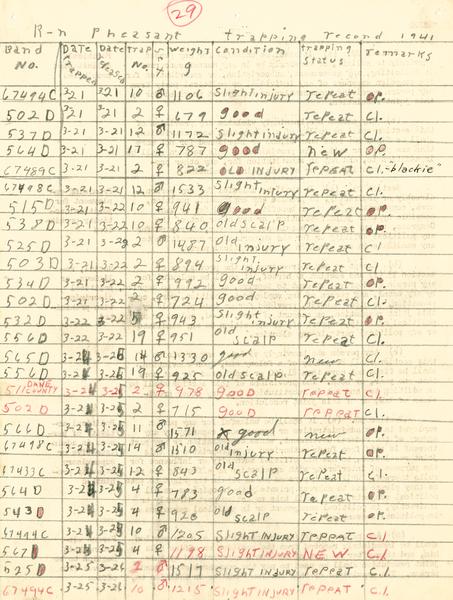 29
R-n Pheasant trapping record 1941
Band No. Date trapped Date released trap No. sex weight g condition trapping status remarks
67494C 3-21 3-21 10 ♂ 1106 Slight injury repeat op.
502D 3-21 3-21 2 ♀ 679 good repeat Cl.
537D 3-21 3-21 12 ♂ 1172 Slight injury repeat Cl.
564D 3-21 3-21 17 ♀ 787 good new op.
67489C 3-21 3-21 2 ♀ 822 OLD INJURY repeat Cl.-"blackie"
67498C 3-21 3-21 12 ♂ 1533 Slight injury repeat Cl.
515D 3-21 3-22 10 ♀ 941 good repeat op.
538D 3-21 3-22 10 ♀ 840 old scalp repeat op.
525D 3-21 3-22 2 ♂ 1487 old injury repeat Cl
503D 3-21 3-22 2 ♀ 894 slight injury repeat Cl.
534D 3-21 3-22 2 ♀ 992 good repeat Cl.
502D 3-21 3-22 2 ♀ 724 good repeat Cl.
532D 3-22 3-22 5 ♀ 943 slight injury repeat op.
556D 3-22 3-22 19 ♀ 951 old scalp repeat Cl.
565D 3-24 14 ♂ 1330 good new Cl.
556D 3-24 19 ♀ 925 old scalp repeat Cl.
511 DANE COUNTY 3-24 2 ♀ 978 good repeat Cl.
502D 3-24 2 ♀ 715 good repeat Cl.
566D 3-24 11 ♂ 1571 good new op.
67498C 3-24 14 ♂ 1510 old injury repeat op.
67433C 3-24 12 ♀ 843 old scalp repeat Cl.
564D 3-24 4 ♀ 783 good repeat op.
543D 3-24 4 ♀ 926 old scalp repeat op.
67494C 3-24 10 ♂ 1205 Slight INJURY repeat C.l.
567D 3-24 4 ♀ 1198 Slight INJURY NEW C.l.
525D 3-25 2 ♂ 1517 Slight INJURY repeat C.l.
67494C 3-25 10 ♂ 1215 Slight INJURY repeat C.l.